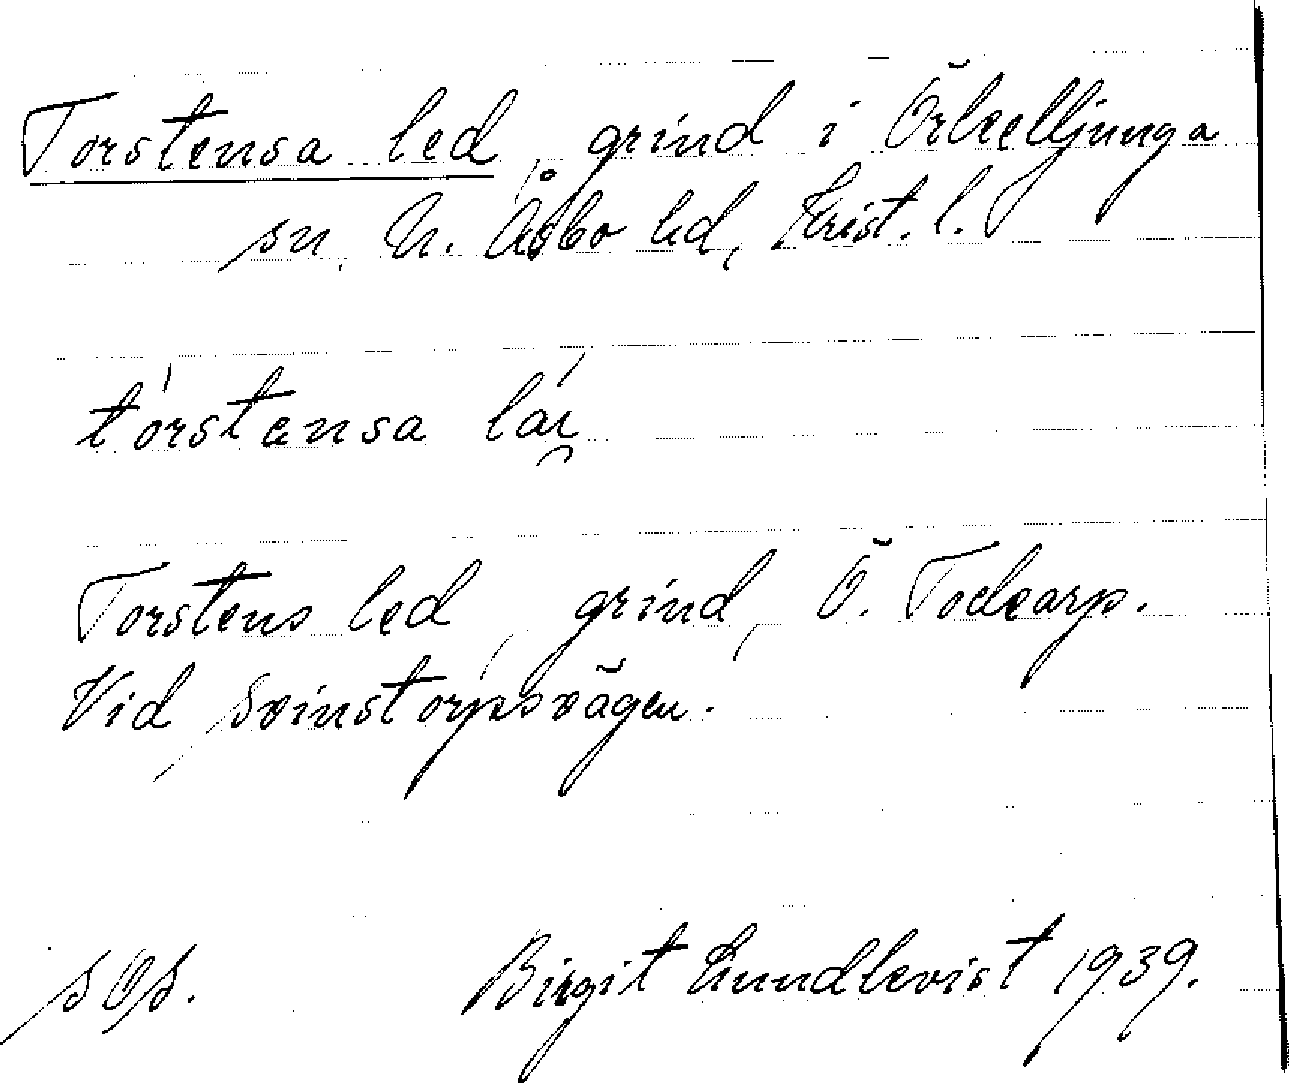 Torstensa led, grind i Örkelljunga
sn. N. Åsbo hd, Krist. l.
tórstensa lái̯
Torstens led, grind, Ö. Tockarp.
Vid Svinstorpsvägen.
Birgit Lundkvist 1939.